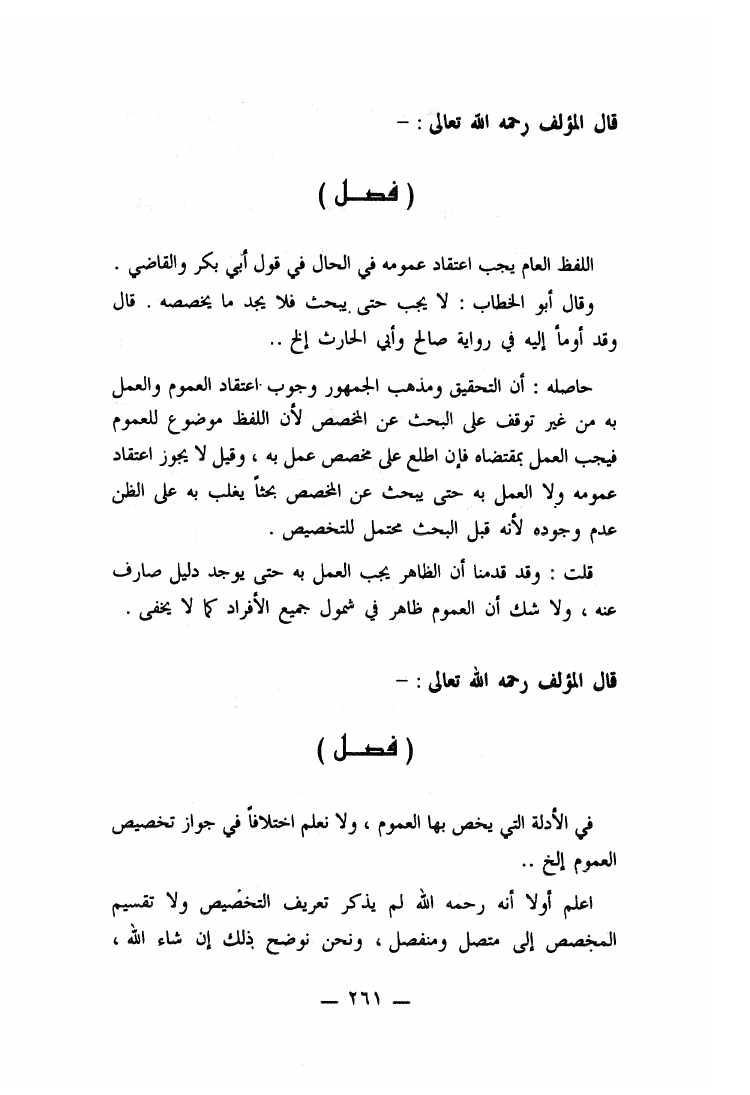 قال المؤلف رحمه الله تعالى : –
( فصــل )
اللفظ العام يجب اعتقاد عمومه في الحال في قول أبي بكر والقاضي .
وقال أبو الخطاب : لا يجب حتى يبحث فلا يجد ما يخصصه . قال
وقد أومأ إليه في رواية صالح وأبي الحارث إلخ ..
حاصله : أن التحقيق ومذهب الجمهور وجوب اعتقاد العموم والعمل
به من غير توقف على البحث عن المخصص لأن اللفظ موضوع للعموم
فيجب العمل بمقتضاه فإن اطلع على مخصص عمل به ، وقيل لا يجوز اعتقاد
عمومه ولا العمل به حتى يبحث عن المخصص بحثاً يغلب به على الظن
عدم وجوده لأنه قبل البحث محتمل للتخصيص .
قلت : وقد قدمنا أن الظاهر يجب العمل به حتى يوجد دليل صارف
عنه ، ولا شك أن العموم ظاهر في شمول جميع الأفراد كما لا يخفى .
قال المؤلف رحمه الله تعالى : –
( فصــل )
في الأدلة التي يخص بها العموم ، ولا نعلم اختلافاً في جواز تخصيص
العموم إلخ ..
اعلم أولا أنه رحمه الله لم يذكر تعريف التخصيص ولا تقسيم
المخصص إلى متصل ومنفصل ، ونحن نوضح ذلك إن شاء الله ،
— ٢٦١ —